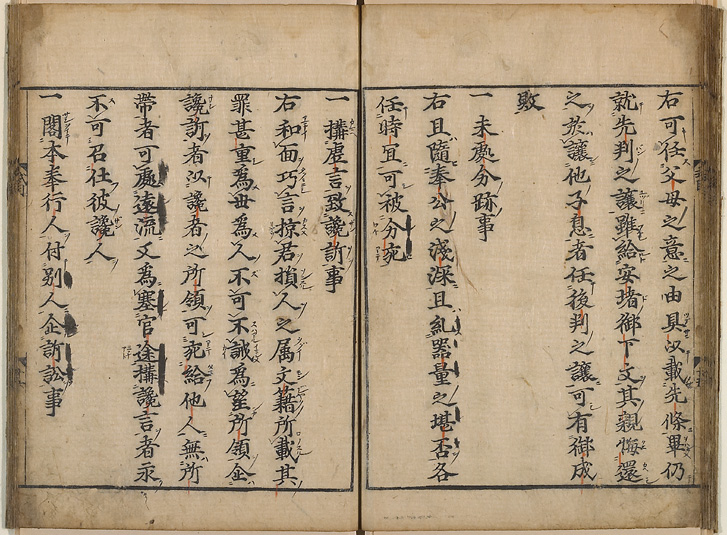 右可任父母之意之由具以載先條畢仍
就先判之讓雖給安堵御下文其親悔還
之於讓他子息者任後判之讓可有御成
敗
一未處分跡事
右且隨奉公之淺深且糺器量之堪否各
任時宜可被分宛
一搆虚言致讒訴事
右和面巧言掠君損人之属文籍所載其
罪甚重為世為人不可不誡為望所領企
讒訴者以讒者之所領可宛給他人無所
帶者可處遠流又為塞官途搆讒言者永
不可召仕彼讒人
一閣本奉行人付别人企訴訟事